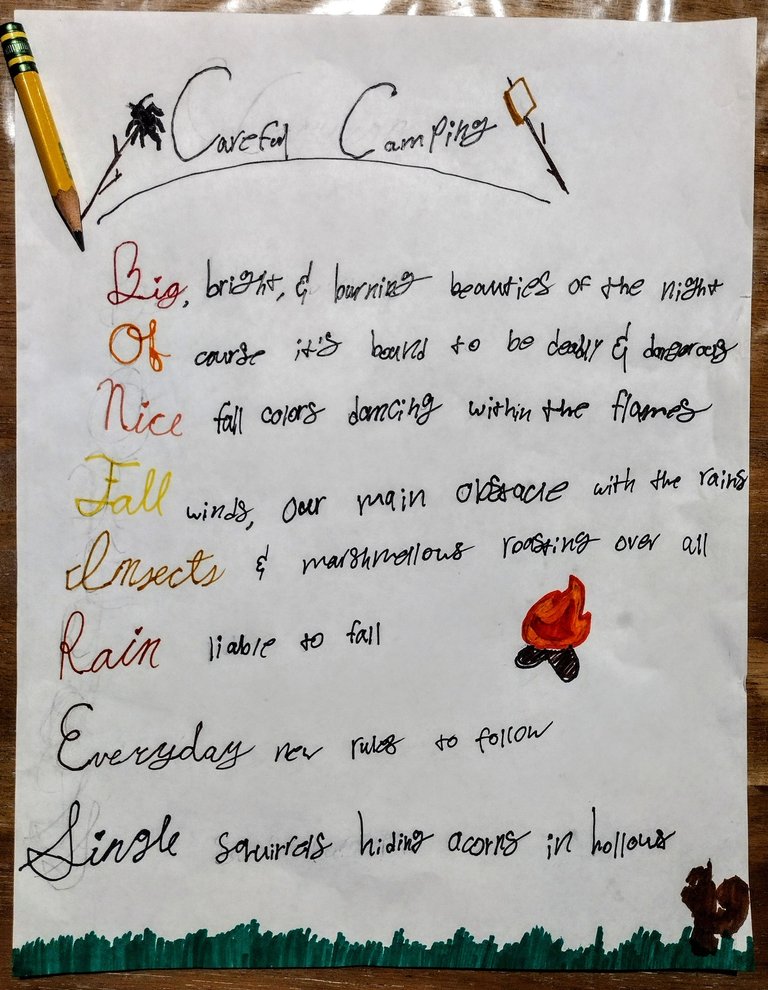 Careful Camping
Big, bright, & burning beauties of the night
Of course it's bound to be deadly & dangerous
Nice fall colors dancing within the flames
Fall winds, our main obstacle with the rains
Insects & marshmellows roasting over all
Rain liable to fall
Everyday new rules to follow
Single squirrels hiding acorns in hollows